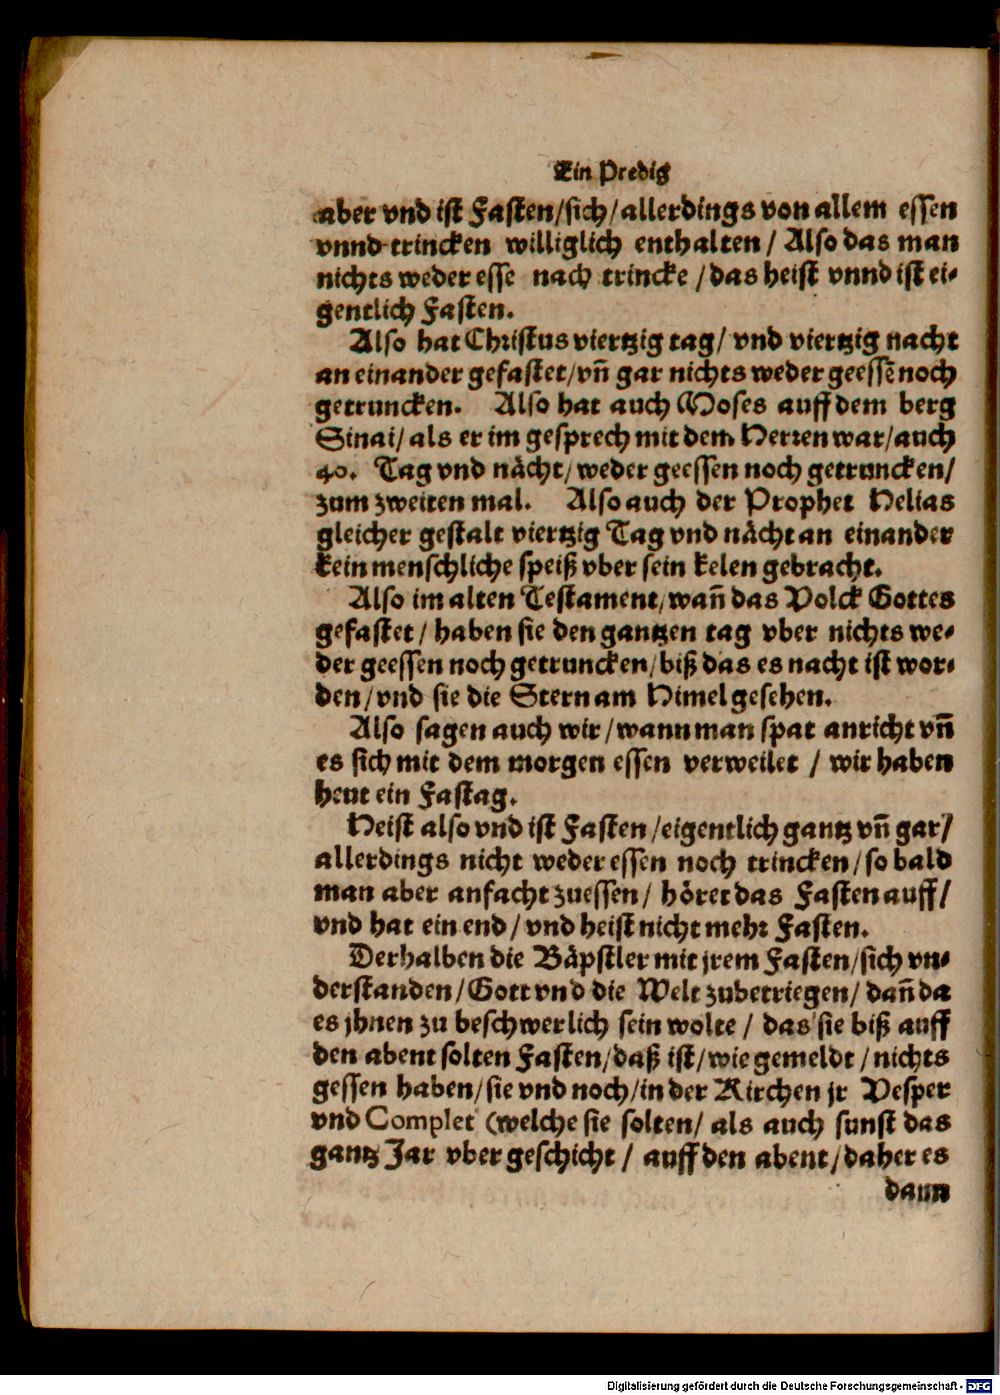 Ein Predig
aber vnd ist Fasten/sich/allerdings von allem essen
vnnd trincken williglich enthalten / Also das man
nichts weder esse nach trincke / das heist vnnd ist ei-
gentlich Fasten.
Also hat Christus viertzig tag/ vnd viertzig nacht
an einander gefastet/vn̄ gar nichts weder geessē noch
getruncken. Also hat auch Moses auff dem berg
Sinai/ als er im gesprech mit dem Herren war/auch
40. Tag vnd nächt/weder geessen noch getruncken/
zum zweiten mal. Also auch der Prophet Helias
gleicher gestalt viertzig Tag vnd nächt an einander
kein menschliche speiß vber sein kelen gebracht.
Also im alten Testament/wan̄ das Volck Gottes
gefastet / haben sie den gantzen tag vber nichts we-
der geessen noch getruncken/biß das es nacht ist wor-
den/vnd sie die Stern am Himel gesehen.
Also sagen auch wir/wann man spat anricht vn̄
es sich mit dem morgen essen verweilet / wir haben
heut ein Fastag.
Heist also vnd ist Fasten/eigentlich gantz vn̄ gar/
allerdings nicht weder essen noch trincken/so bald
man aber anfacht zuessen/ höret das Fasten auff/
vnd hat ein end/vnd heist nicht mehr Fasten.
Derhalben die Bäpstler mit jrem Fasten/sich vn-
derstanden/Gott vnd die Welt zubetriegen/ dan̄ da
es jhnen zu beschwerlich sein wolte / das sie biß auff
den abent solten Fasten/daß ist/wie gemeldt/nichts
gessen haben/sie vnd noch/in der Kirchen jr Vesper
vnd Complet (welche sie solten/ als auch sunst das
gantz Jar vber geschicht / auff den abent/daher es
dann
Digitalisierung gefördert durch die Deutsche Forschungsgemeinschaft - DFG